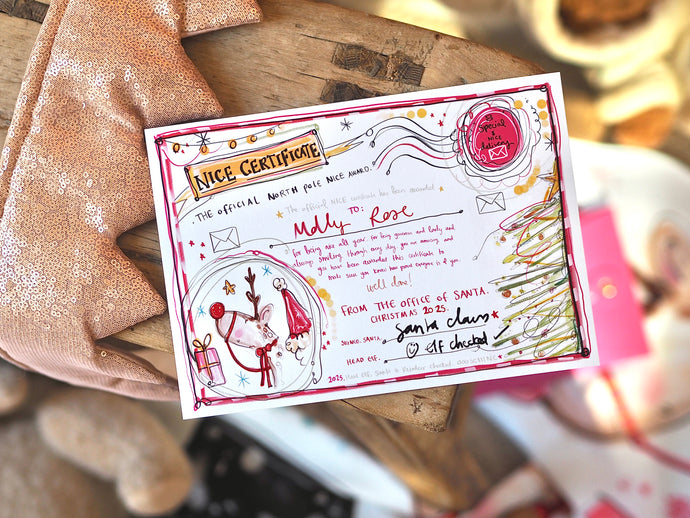 NICE CERTIFICATE
Special
& NICE
delivery
THE OFFICIAL NORTH POLE NICE AWARD.
The official NICE certificate has been awarded
TO:
Molly Rose
for being nice all year for being generous and lovely and
always smiling through every day you are amazing and
you have been awarded this certificate to
make sure you know how proud everyone is of you.
well done!
FROM THE OFFICE OF SANTA.
CHRISTMAS 2025.
SIGNED, SANTA. Santa Claus
HEAD ELF. elf checked
2025, Head Elf, Santa & Reindeer Checked.